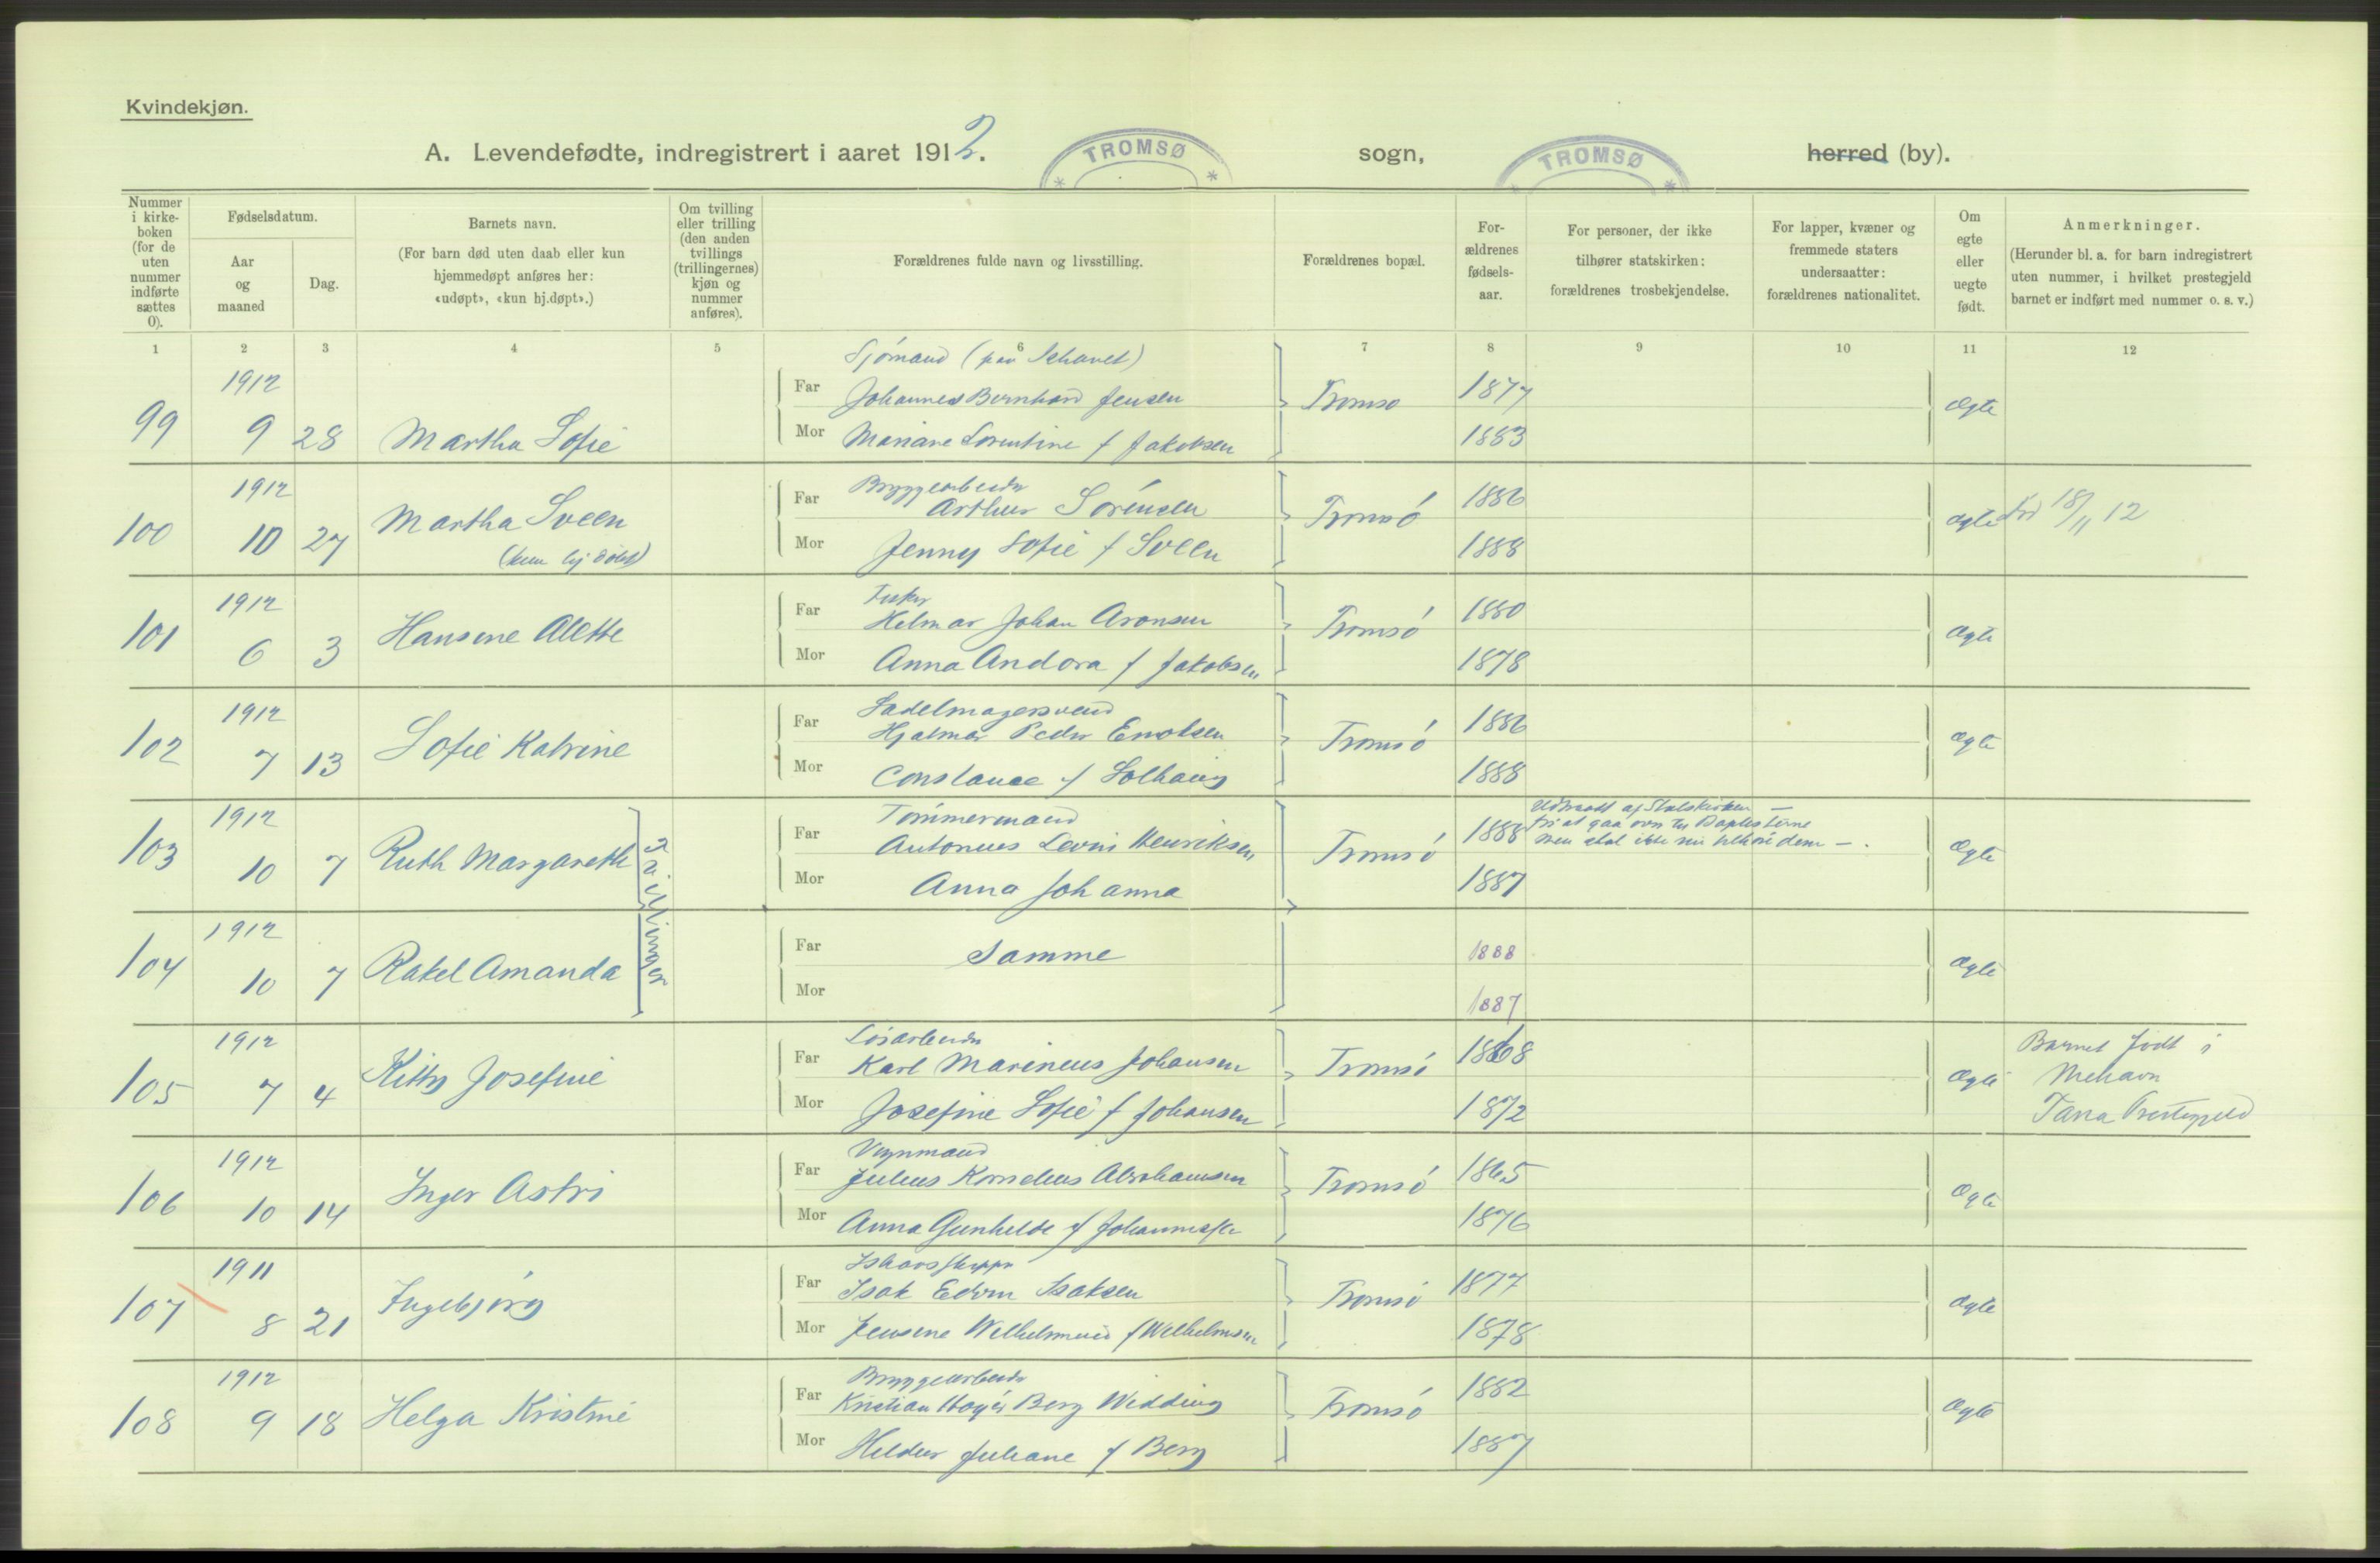 Kvindekjøn.
A. Levendefødte, indregistrert i aaret 1912. TROMSØ sogn, TROMSØ herred (by).
Nummer i kirke-boken (for de uten nummer indførte sættes 0).
Fødselsdatum.
Aar og maaned
Dag.
Barnets navn.
(For barn død uten daab eller kun hjemmedøpt anføres her: «udøpt», «kun hj.døpt».)
Om tvilling eller trilling (den anden tvillings (trillingernes) kjøn og nummer anføres).
Forældrenes fulde navn og livsstilling.
Forældrenes bopæl.
For-ældrenes fødsels-aar.
For personer, der ikke tilhører statskirken: forældrenes trosbekjendelse.
For lapper, kvæner og fremmede staters undersaatter: forældrenes nationalitet.
Om egte eller uegte født.
Anmerkninger.
(Herunder bl. a. for barn indregistrert uten nummer, i hvilket prestegjeld barnet er indført med nummer o. s. v.)
1 2 3 4 5 6 7 8 9 10 11 12
Sjømand (paa Ishavet)
1912
99 9 28 Martha Sofie Far Johannes Bernhard Jensen Tromsø 1877 Ægte
Mor Mariane Lorentine f Jakobsen 1883
1912 Bryggearbeider
100 10 27 Martha Sveen Far Arthur Sörensen Tromsö 1886 ægte 18/11 12
(kun hj døbt) Mor Jenny Sofie f Sveen 1888
1912 Fisker
101 6 3 Hansine Alette Far Helmar Johan Aronsen Tromsö 1880 Ægte
Mor Anna Andora f Jakobsen 1878
1912 Sadelmagersvend
102 7 13 Sofie Katrine Far Hjalmar Peder Enoksen Tromsö 1886 Ægte
Mor Constance f Solhaug 1888
1912 Tömmermand
103 10 7 Ruth Margareth Tvillinger Far Antonius Levin Henriksen Tromsö 1888 Ægte
Udtraadt af Statskirken —
for at gaa over til Baptisterne
men skal ikke nu tilhöre dem — .
Mor Anna Johanna 1887
1912
104 10 7 Rakel Amanda Far Samme 1888 Ægte
Mor 1887
1912 Løsarbeider
105 7 4 Kitty Josefine Far Karl Marineus Johansen Tromsö 1868 Ægte
Mor Josefine Sofie f Johansen 1872
Barnet født i
Mehavn
Tana Prestegjeld
1912 Vognmand
106 10 14 Inger Astri Far Julius Kornelius Abrahamsen Tromsö 1865 Ægte
Mor Anna Gunhilde f Johannessen 1876
1911 Ishavsskipper
107 8 21 Ingebjörg Far Isak Edvin Isaksen Tromsö 1877 Ægte
Mor Jensine f Wilhelmsen 1878
1912 Bryggearbeider
108 9 18 Helga Kristine Far Kristian Berg Widding Tromsö 1882 Ægte
Mor Hildur Juliane f Berg 1887